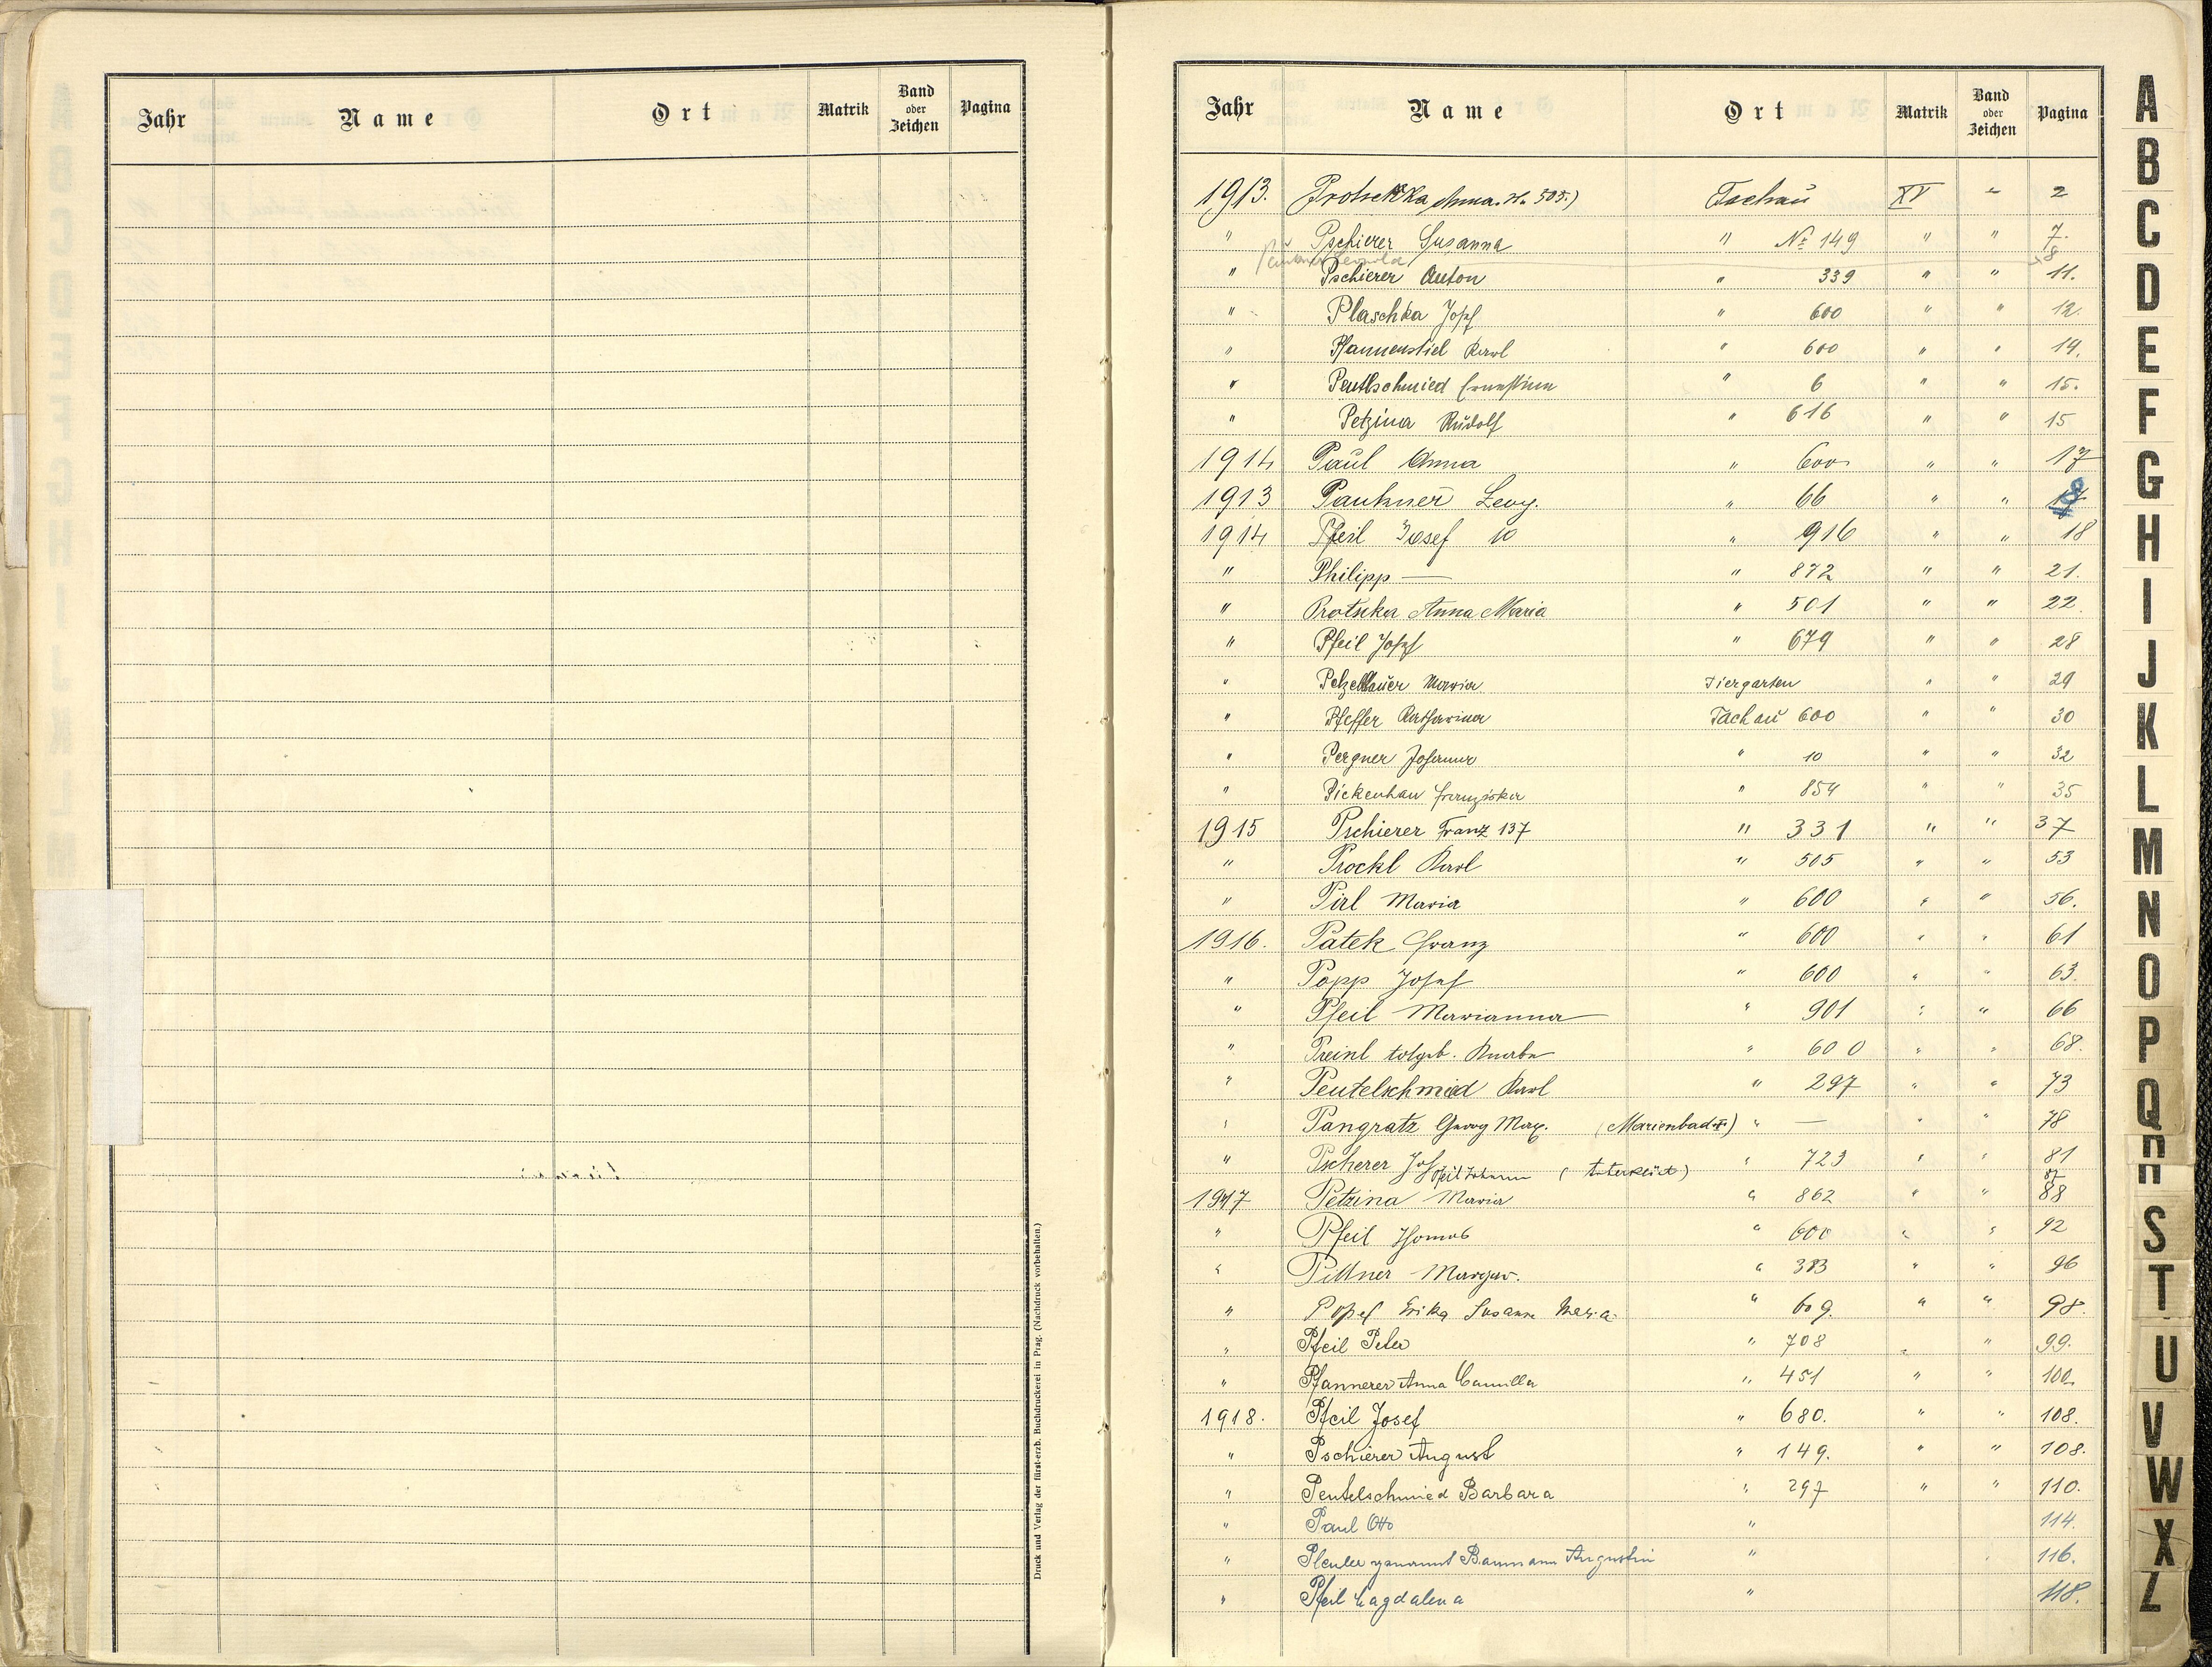 Jahr Name Ort Matrik Band oder Zeichen Pagina
Druck und Verlag der fürst-erzb. Buchdruckerei in Prag. (Nachdruck vorbehalten.)
Jahr Name Ort Matrik Band oder Zeichen Pagina
1913. Protschka Anna. N. 505.) Tachau XV " 2
" Pschierer Susanna " № 149 " " 7.
8
" Pschierer Anton " 339 " " 11.
" Plaschka Josef " 600 " " 12.
" Pfannenstiel Karl " 600 " " 14.
" Peutlschmied Ernestine " 6 " " 15.
" Petzina Rudolf " 616 " " 15
1914 Paul Anna " 600 " " 17
1913 Paukner Leop. " 66 " " 18
1914 Pfeil Josef 10 " 916 " " 18
" Philipp — " 872 " " 21.
" Protschka Anna Maria " 501 " " 22.
" Pfeil Josef " 679 " " 28
" Pelzelbauer Maria Tiergarten " " 29
" Pfeffer Katharina Tachau 600 " " 30
" Pergner Johanna " 10 " " 32
" Pickenhau Franziska " 854 " " 35
1915 Pschierer Franz 137 " 331 " " 37
" Prockl Karl " 505 " " 53
" Pirl Maria " 600 " " 56.
1916. Patek Franz " 600 " " 61
" Popp Josef " 600 " " 63.
" Pfeil Marianna " 901 " " 66
" Preinl totgeb. Knabe " 600 " " 68.
" Peutelschmied Karl " 297 " " 73
" Pangratz Georg Max. (Marienbad) " — " " 78
" Pscherer Jos " 723 " " 81
Pfeil Johann 87
1917 Petzina Maria " 862 " " 88
" Pfeil Thomas " 600 " " 92
" Pittner Margar. " 383 " " 96
" Erika Susanna Maria " 609. " " 98.
" Pfeil Peter " 708 " " 99.
" Pfannerer Anna Camilla " 451 " " 100.
1918. Pfeil Josef " 680. " " 108.
" Pschierer August " 149. " " 108.
" Peutelschmied Barbara " 297 " " 110.
" Paul Otto " 114.
" genannt Baumann Augustin " 116.
" Pfeil Magdalena " 118.
A
B
C
D
E
F
G
H
I
J
K
L
M
N
O
P
Q
R
S
T
U
V
W
X
Z